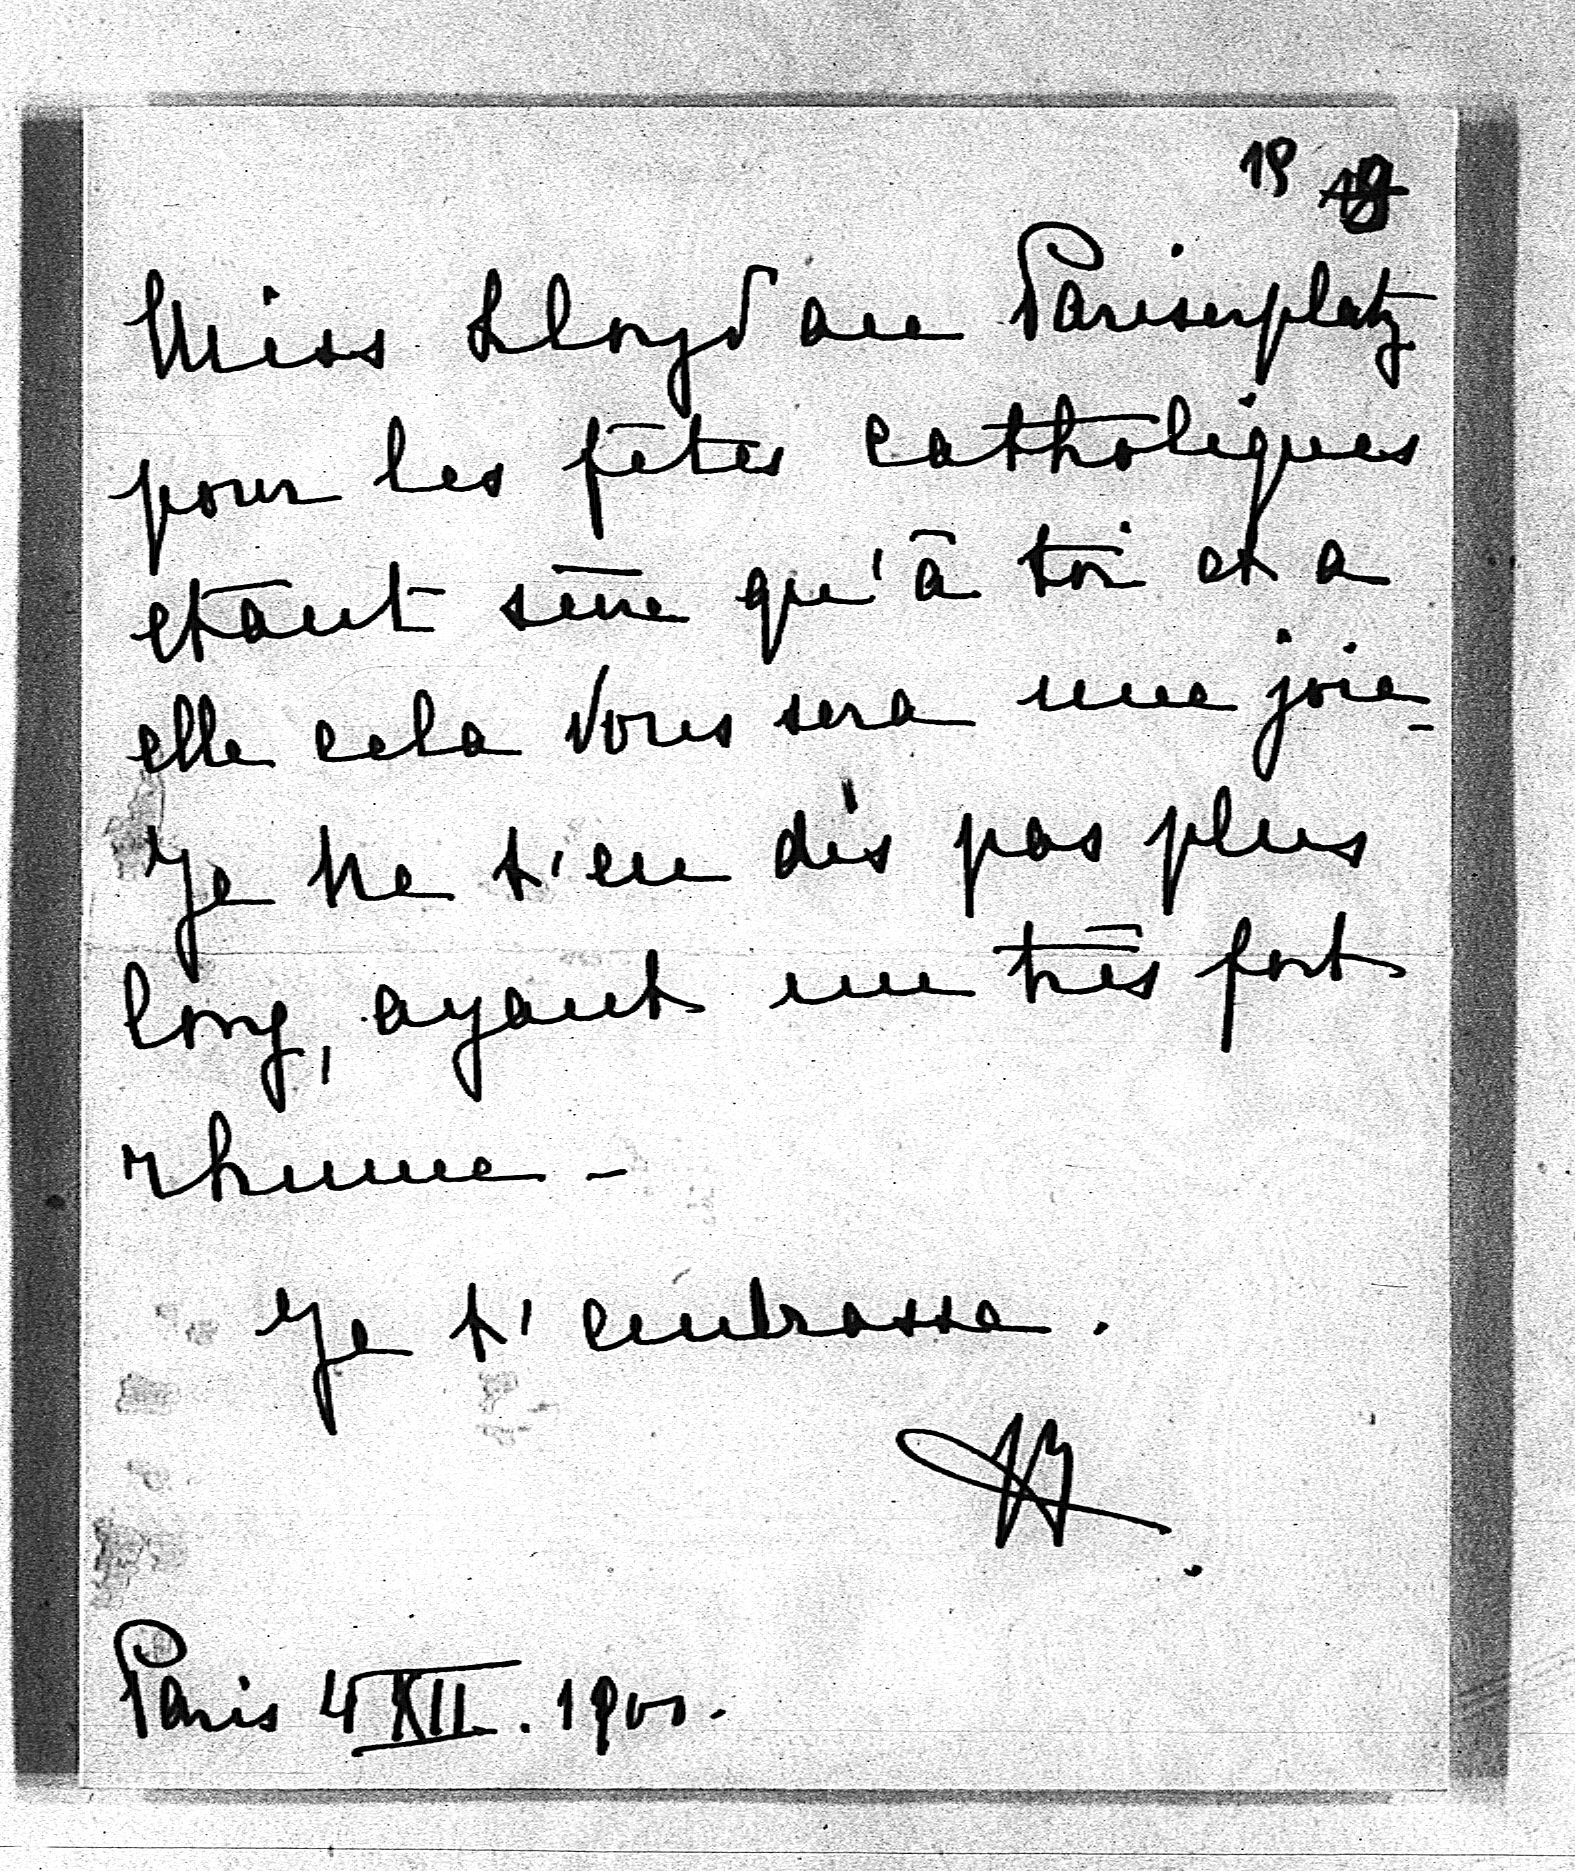 19
Miss Lloyd au Pariserplatz
pour les fêtes catholiques
etant sûre qu'à toi et a
elle cela vous sera une joie -
Je ne t'en dis pas plus
long, ayant un très fort
rhume -
Je t'embrasse.
Paris 4 XII. 1900.